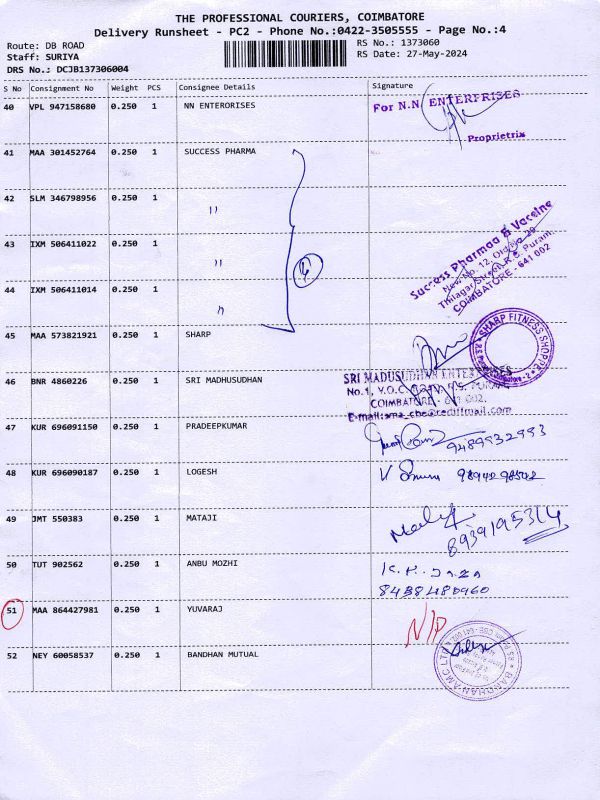 THE PROFESSIONAL COURIERS, COIMBATORE
Delivery Runsheet - PC2 - Phone No.:0422-3505555 - Page No.:4
Route: DB ROAD RS No.: 1373060
Staff: SURIYA RS Date: 27-May-2024
DRS No.: DCJB137306004
S No Consignment No Weight PCS Consignee Details Signature
40 VPL 947158680 0.250 1 NN ENTERORISES
For N.N. ENTERPRISES
Proprietrix
41 MAA 301452764 0.250 1 SUCCESS PHARMA
42 SLM 346798956 0.250 1 "
43 IXM 506411022 0.250 1 "
4
44 IXM 506411014 0.250 1 "
Success Pharmaa & Vaccine
New No. 12, Old No. 29
Thilagar Street, R.S. Puram,
COIMBATORE - 641 002
45 MAA 573821921 0.250 1 SHARP
SHARP FITNESS SHOPPE
46 BNR 4860226 0.250 1 SRI MADHUSUDHAN
SRI MADUSUDHAN ENTERPRISES
No.1, V.O.C. R.S. PURAM,
COIMBATORE - 641 002.
47 KUR 696091150 0.250 1 PRADEEPKUMAR
9489932993
48 KUR 696090187 0.250 1 LOGESH
49 JMT 550383 0.250 1 MATAJI
50 TUT 902562 0.250 1 ANBU MOZHI
8438480960
51 MAA 864427981 0.250 1 YUVARAJ N/P
52 NEY 60058537 0.250 1 BANDHAN MUTUAL
BANDHAN AMC LTD